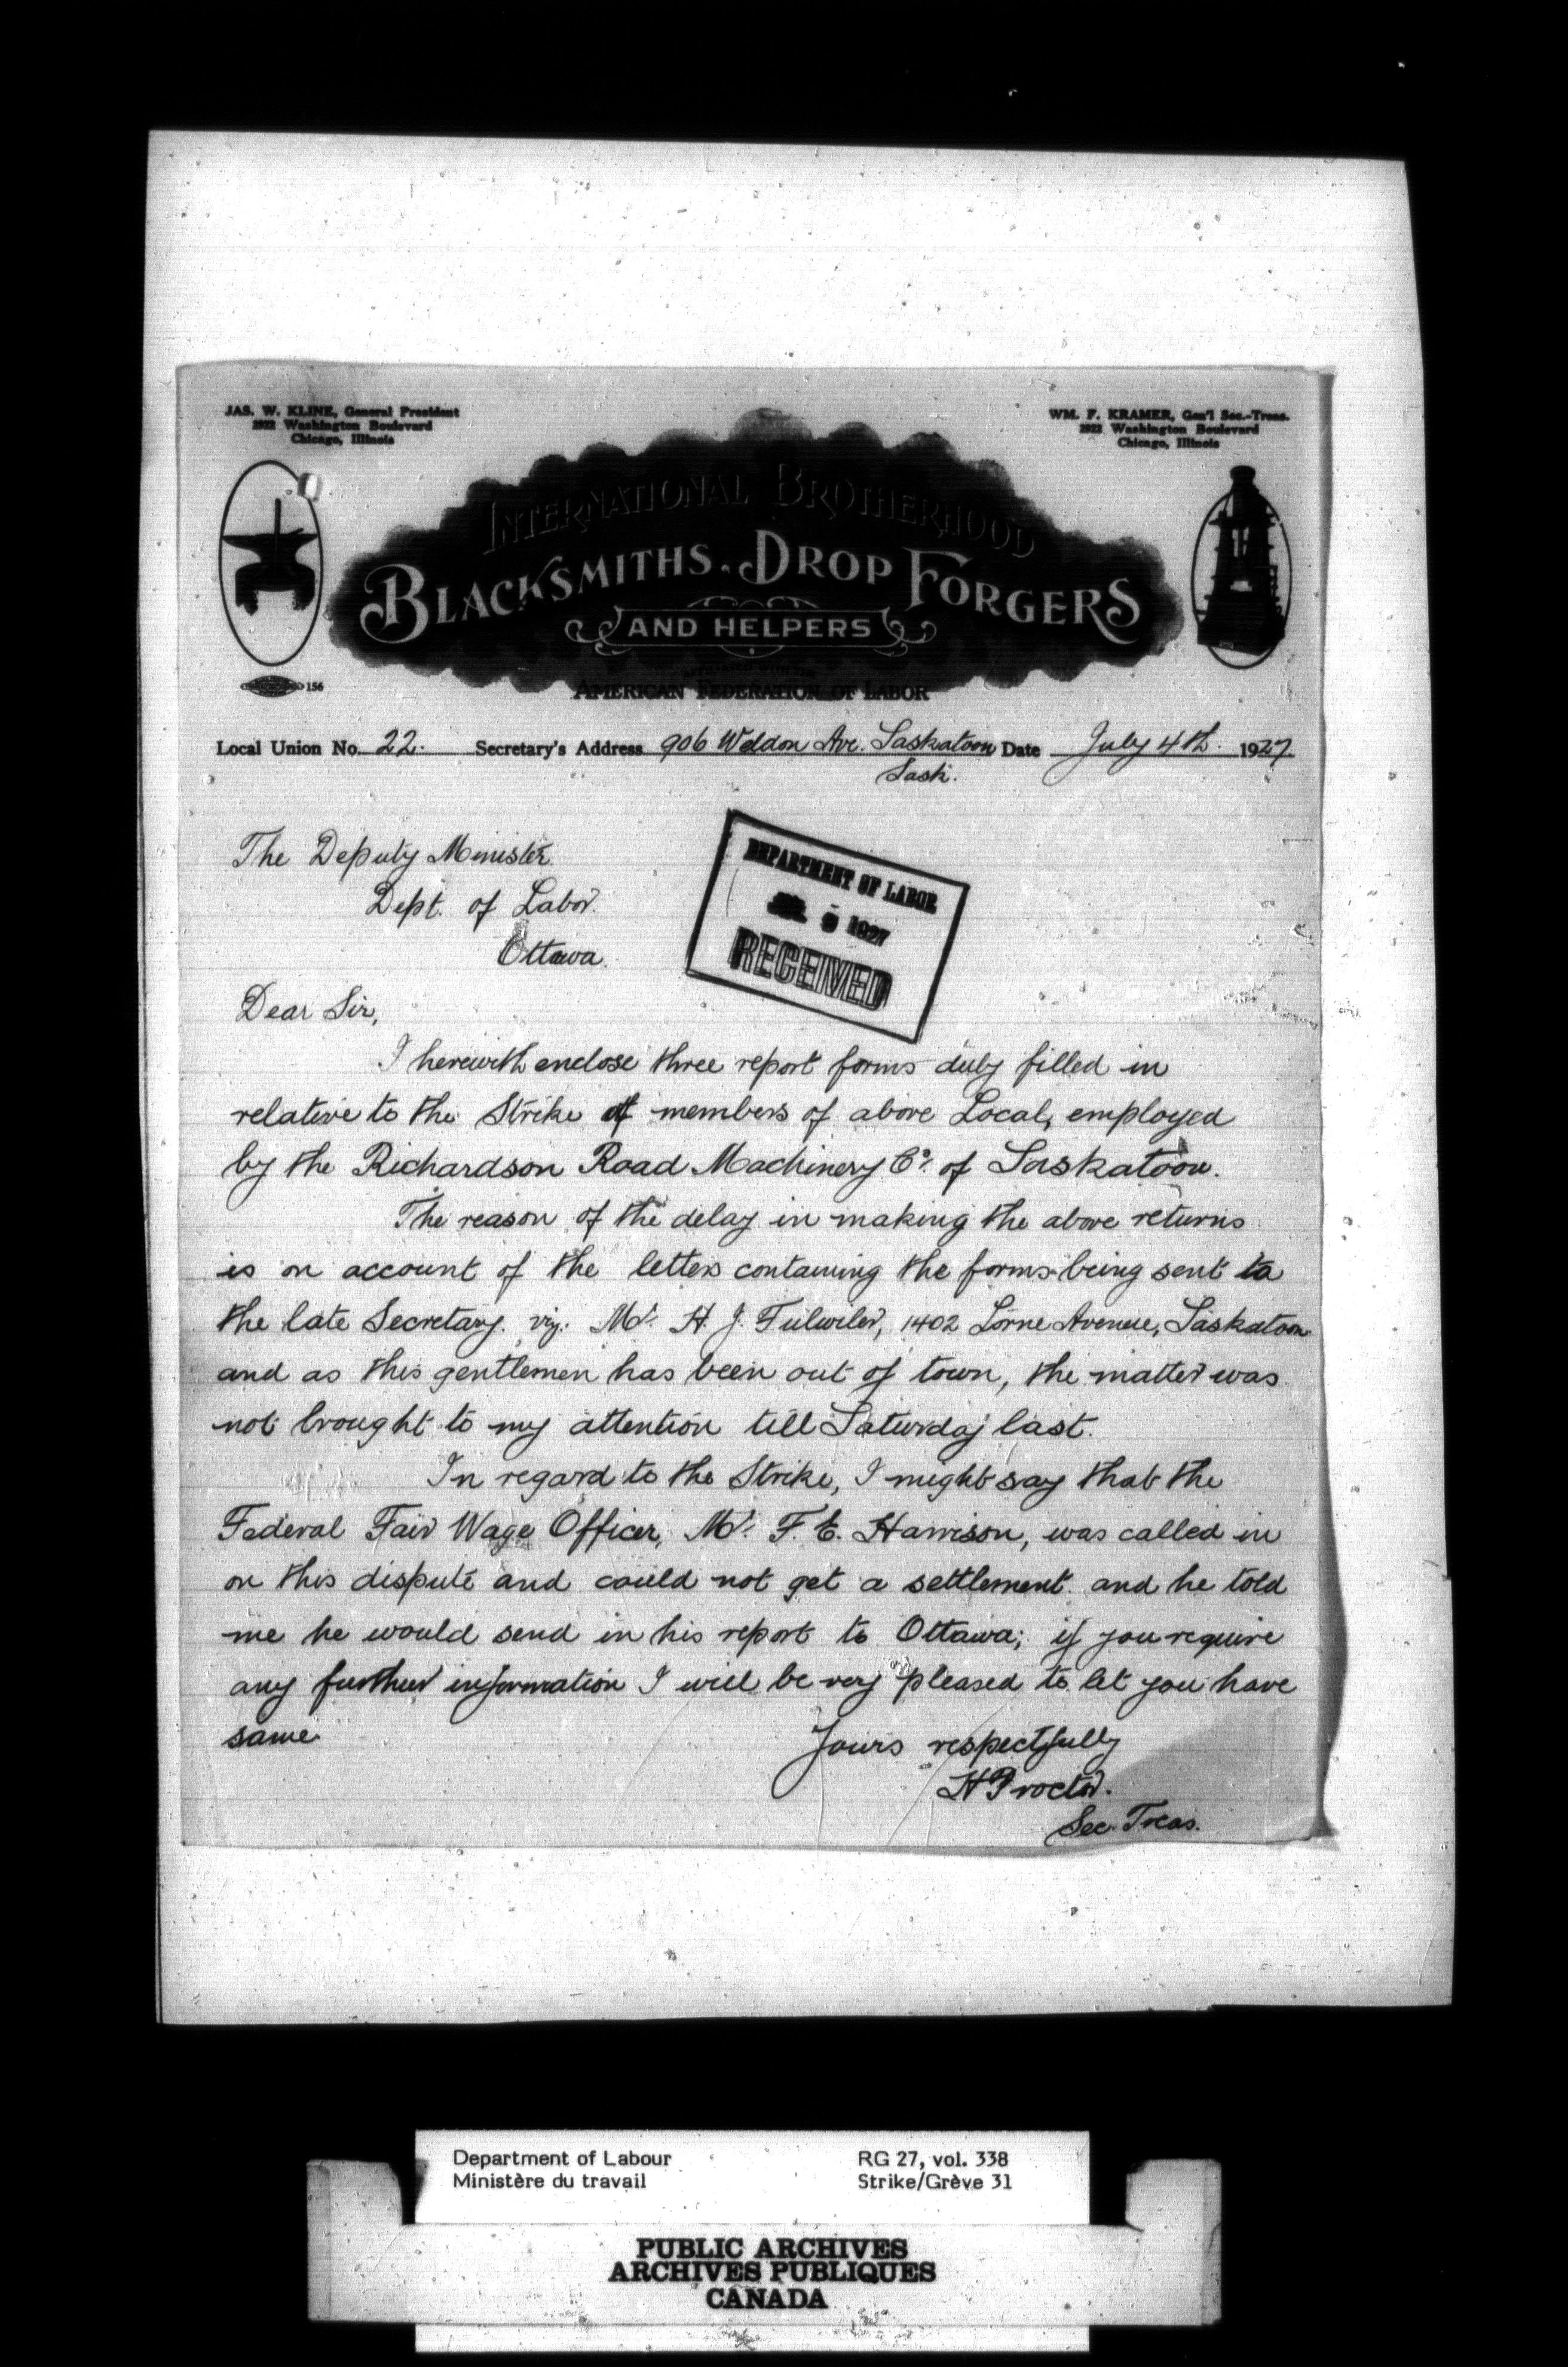 JAS. W. KLINE, General President
2922 Washington Boulevard
Chicago, Illinois
WM. F. KRAMER, Gen'l Sec.-Treas.
2922 Washington Boulevard
Chicago, Illinois
INTERNATIONAL BROTHERHOOD
BLACKSMITHS. DROP FORGERS
AND HELPERS
AFFILIATED WITH THE
AMERICAN FEDERATION OF LABOR
156
Local Union No. 22. Secretary's Address 906 Weldon Ave. Saskatoon Date July 4th. 1927.
Sask.
The Deputy Minister
Dept. of Labor.
Ottawa.
DEPARTMENT OF LABOR
1927
RECEIVED
Dear Sir,
I herewith enclose three report forms duly filled in
relative to the Strike of members of above Local, employed
by the Richardson Road Machinery Co. of Saskatoon.
The reason of the delay in making the above returns
is on account of the letters containing the forms being sent to
the late Secretary. viz. Mr. H. J. Fulwiler, 1402 Lorne Avenue, Saskatoon
and as this gentlemen has been out of town, the matter was
not brought to my attention till Saturday last.
In regard to the Strike, I might say that the
Federal Fair Wage Officer, Mr. F. E. Harrison, was called in
on this dispute and could not get a settlement. and he told
me he would send in his report to Ottawa; if you require
any further information I will be very pleased to let you have
same
Yours respectfully
H Proctor.
Sec. Treas.
Department of Labour
Ministère du travail
RG 27, vol. 338
Strike/Grève 31
PUBLIC ARCHIVES
ARCHIVES PUBLIQUES
CANADA